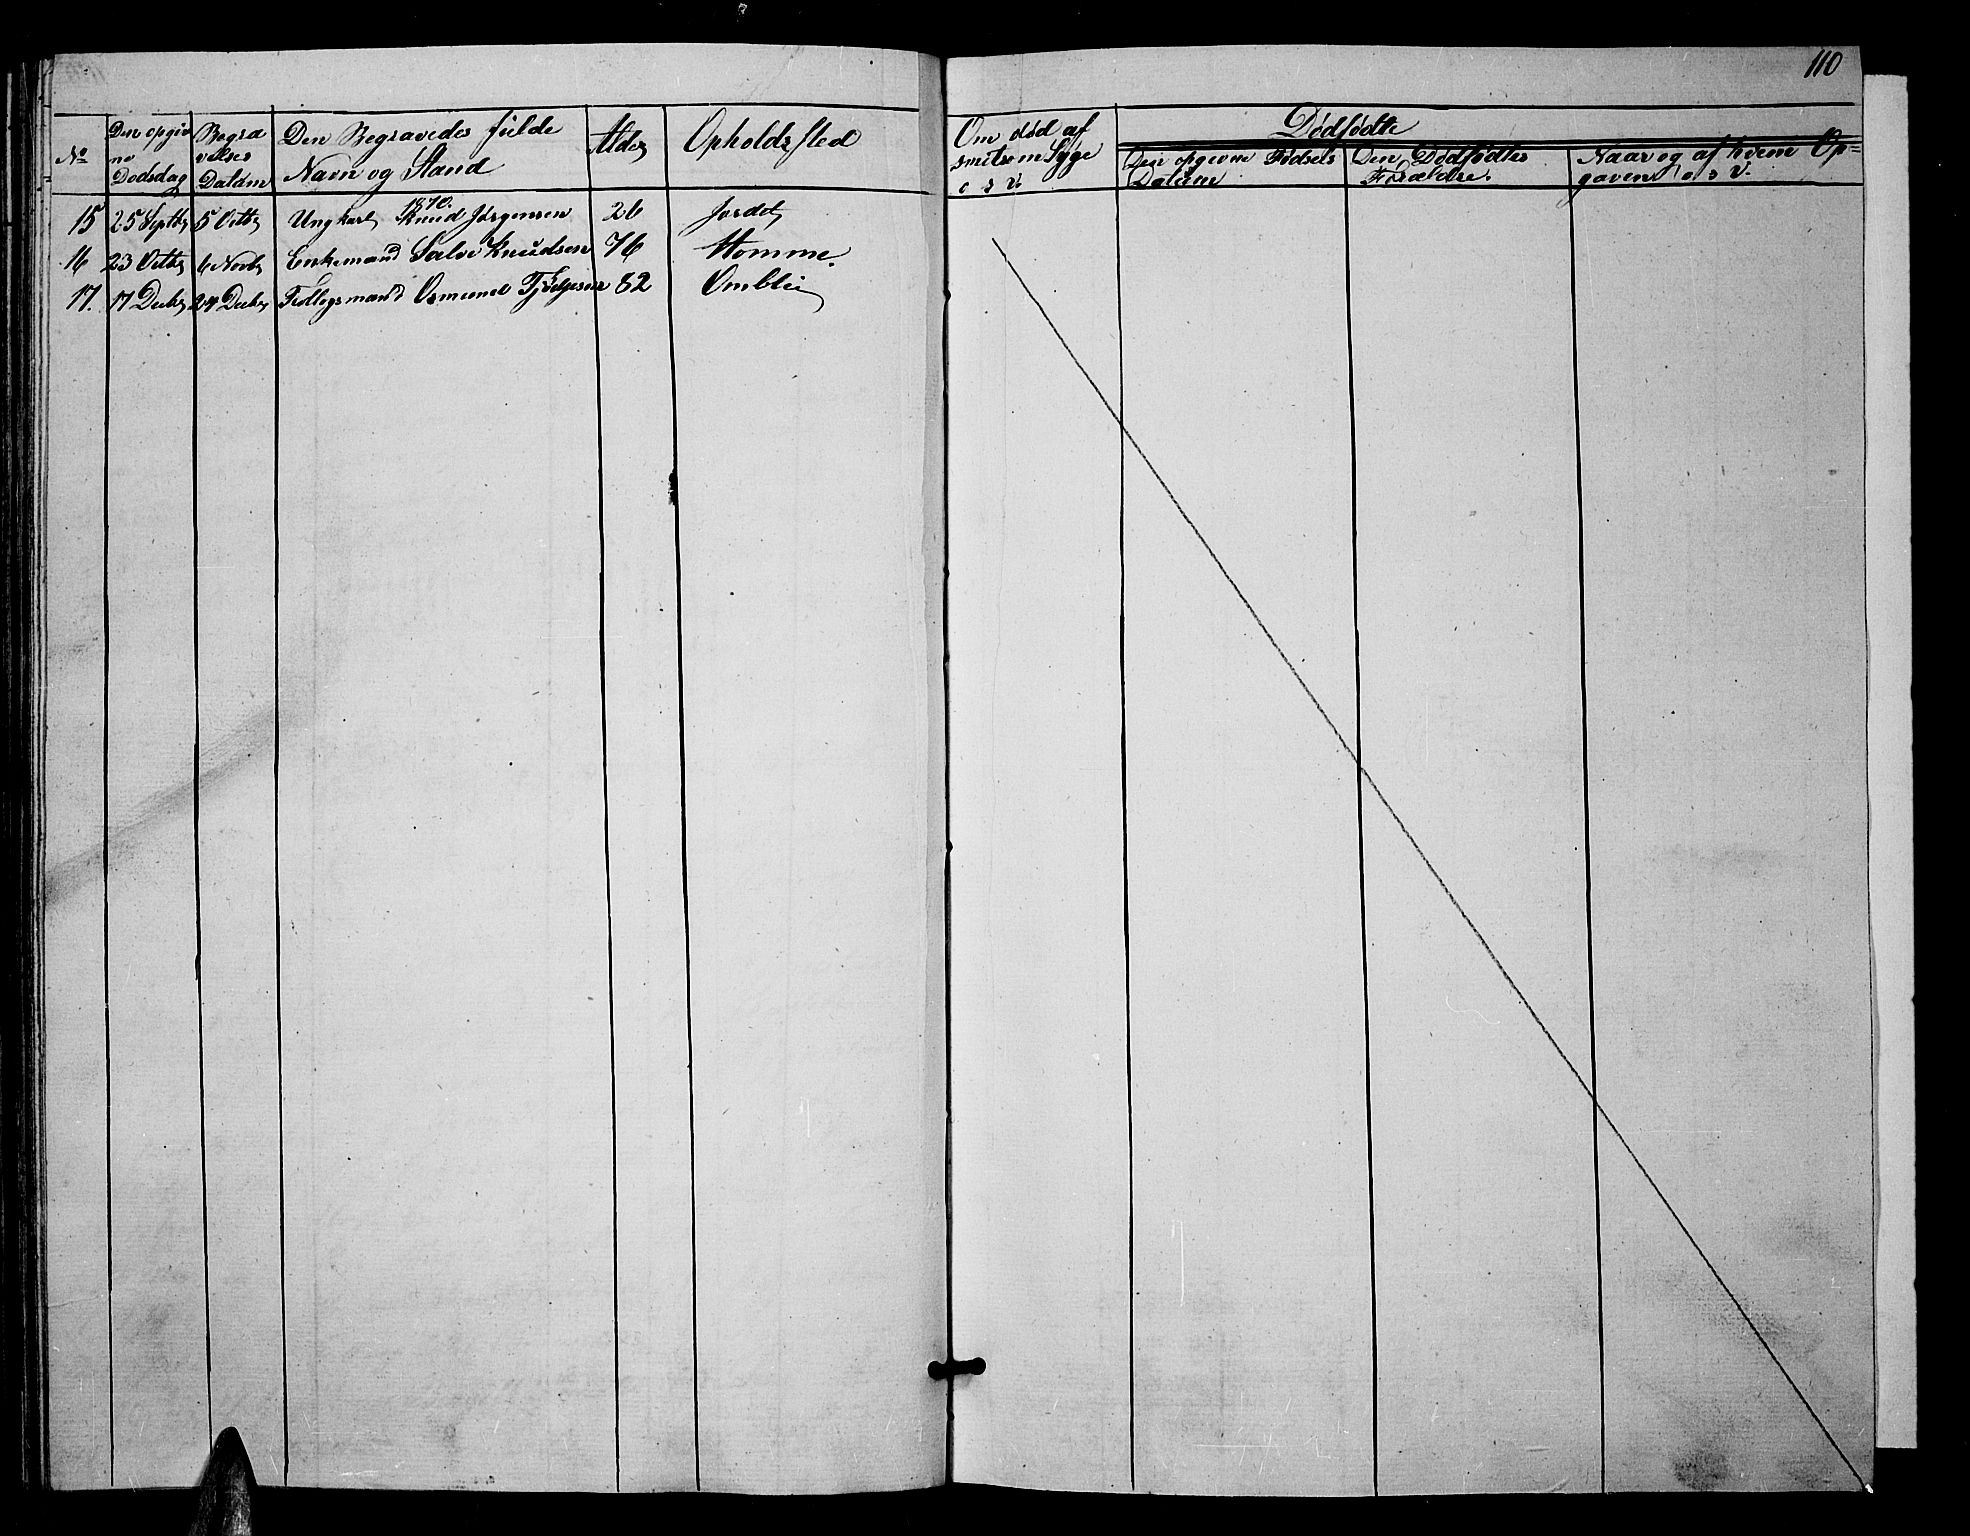 110
No
Den opgiv
ne
Dødsdag
Begra
velses
Datum
Den Begravedes fulde
Navn og Stand
Alder
Opholdssted
Om død af
smitsom Syge
o s v.
Dødfødte
Den opgivne Fødsels
Datum
Den Dødfødtes
Forældre.
Naar og af hvem Op-
gaven o. s v.
1870.
15 25 Septbr 5 Octbr Ungkarl Knud Jørgensen 26
16 23 Octbr 6 Novbr Enkemand Salve Knudsen 76 Homme.
17. 17 Decbr 24 Decbr Osmund 82 Omblie